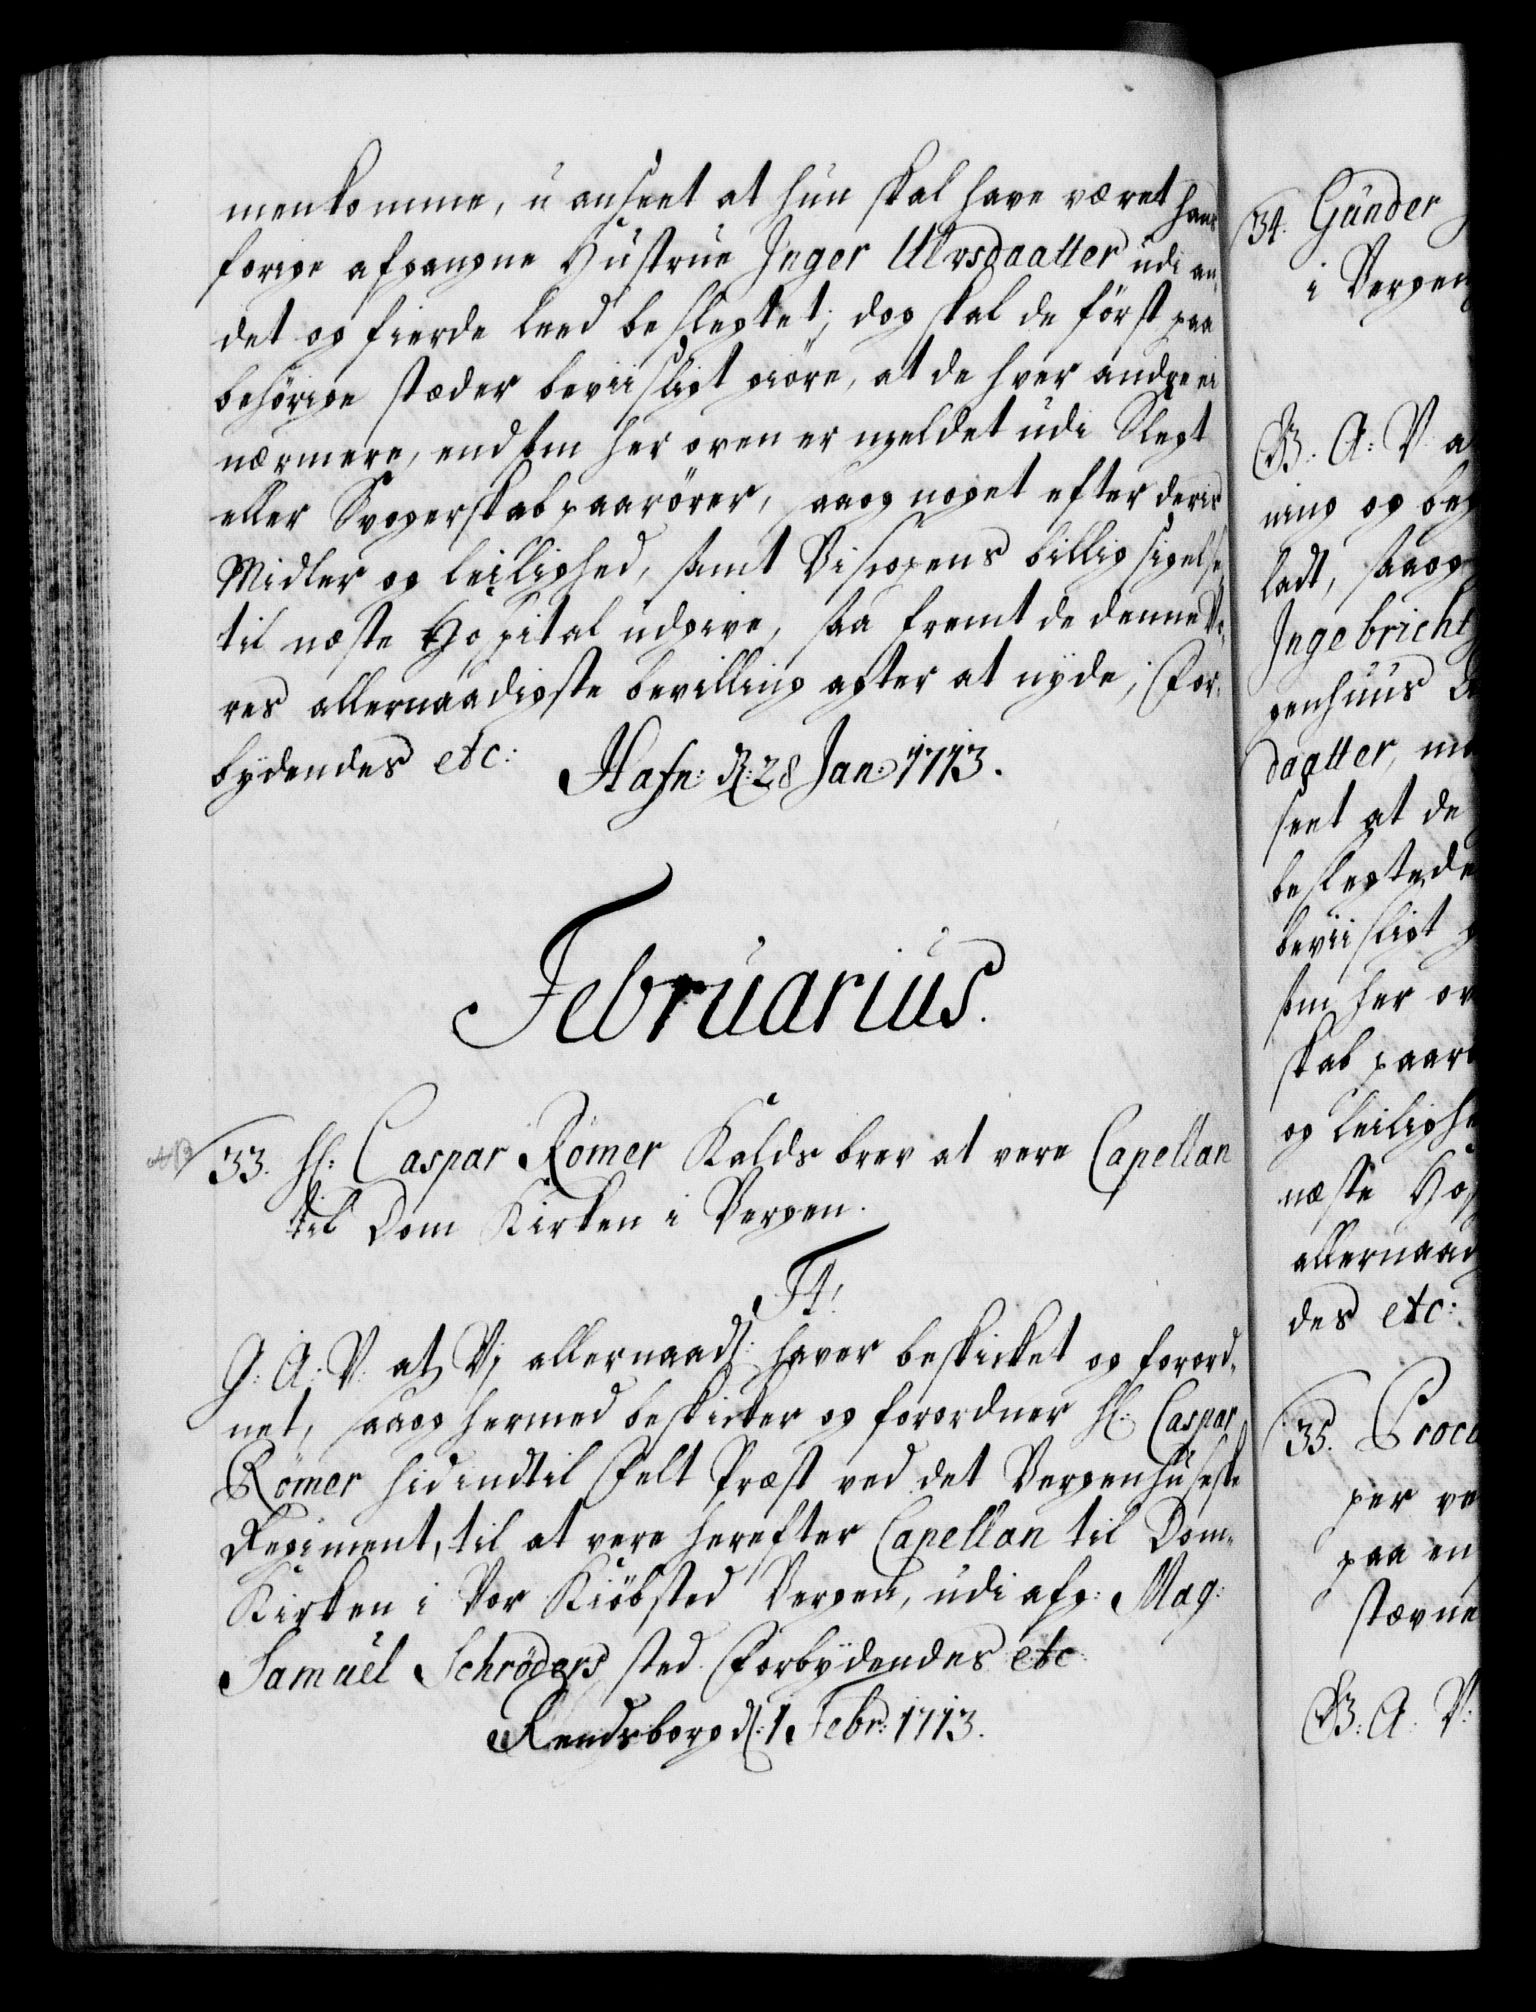 menkomme, u anseet at hun skal have været hans
forige afgangne Hustrue Inger Ulvsdaatter udi an-
det og fierde leed beslegtet; dog skal de först paa
behörige stæder beviisligt giöre, at de hver andre ei
nærmere, end som her oven er meldet udi Slegt
eller Svogerskab paarörer, saaog noget efter deris
Midler og leilighed, samt Bispens billig sigelse,
til næste Hospital udgive, saa fremt de denne Vo-
res allernaadigste bevilling agter at nyde; For-
bydendes etc: Hafn: d: 28 Jan: 1713.
Februarius.
33. Hr: Caspar Römer Kalds brev at vere Capellan
til Dom Kirken i Bergen.
F4!
G: A: V: at Vi allernaad: haver beskicket og forord-
net, saaog hermed beskicker og forordner Hr: Caspar
Römer hid indtil Felt Præst ved det Bergenhusiske
Regiment, til at vere herefter Capellan til Dom-
Kirken i Vor Kiöbsted Bergen, udi afg: Mag:
Samuel Schröders sted. Forbydendes etc
Rendsborg d: 1 Febr: 1713.
34. Gunder
i Bergen
G: A: V: a
ning og beg
ladt, saaog
Ingebricht
genhuus
daatter,
seet at de
beslegtede
beviisligt
som her ov
skab paarö
og leilighe
næste Hos
allernaad
des etc:
35. Proc
per ve
paa en
stævne
G: A: V: